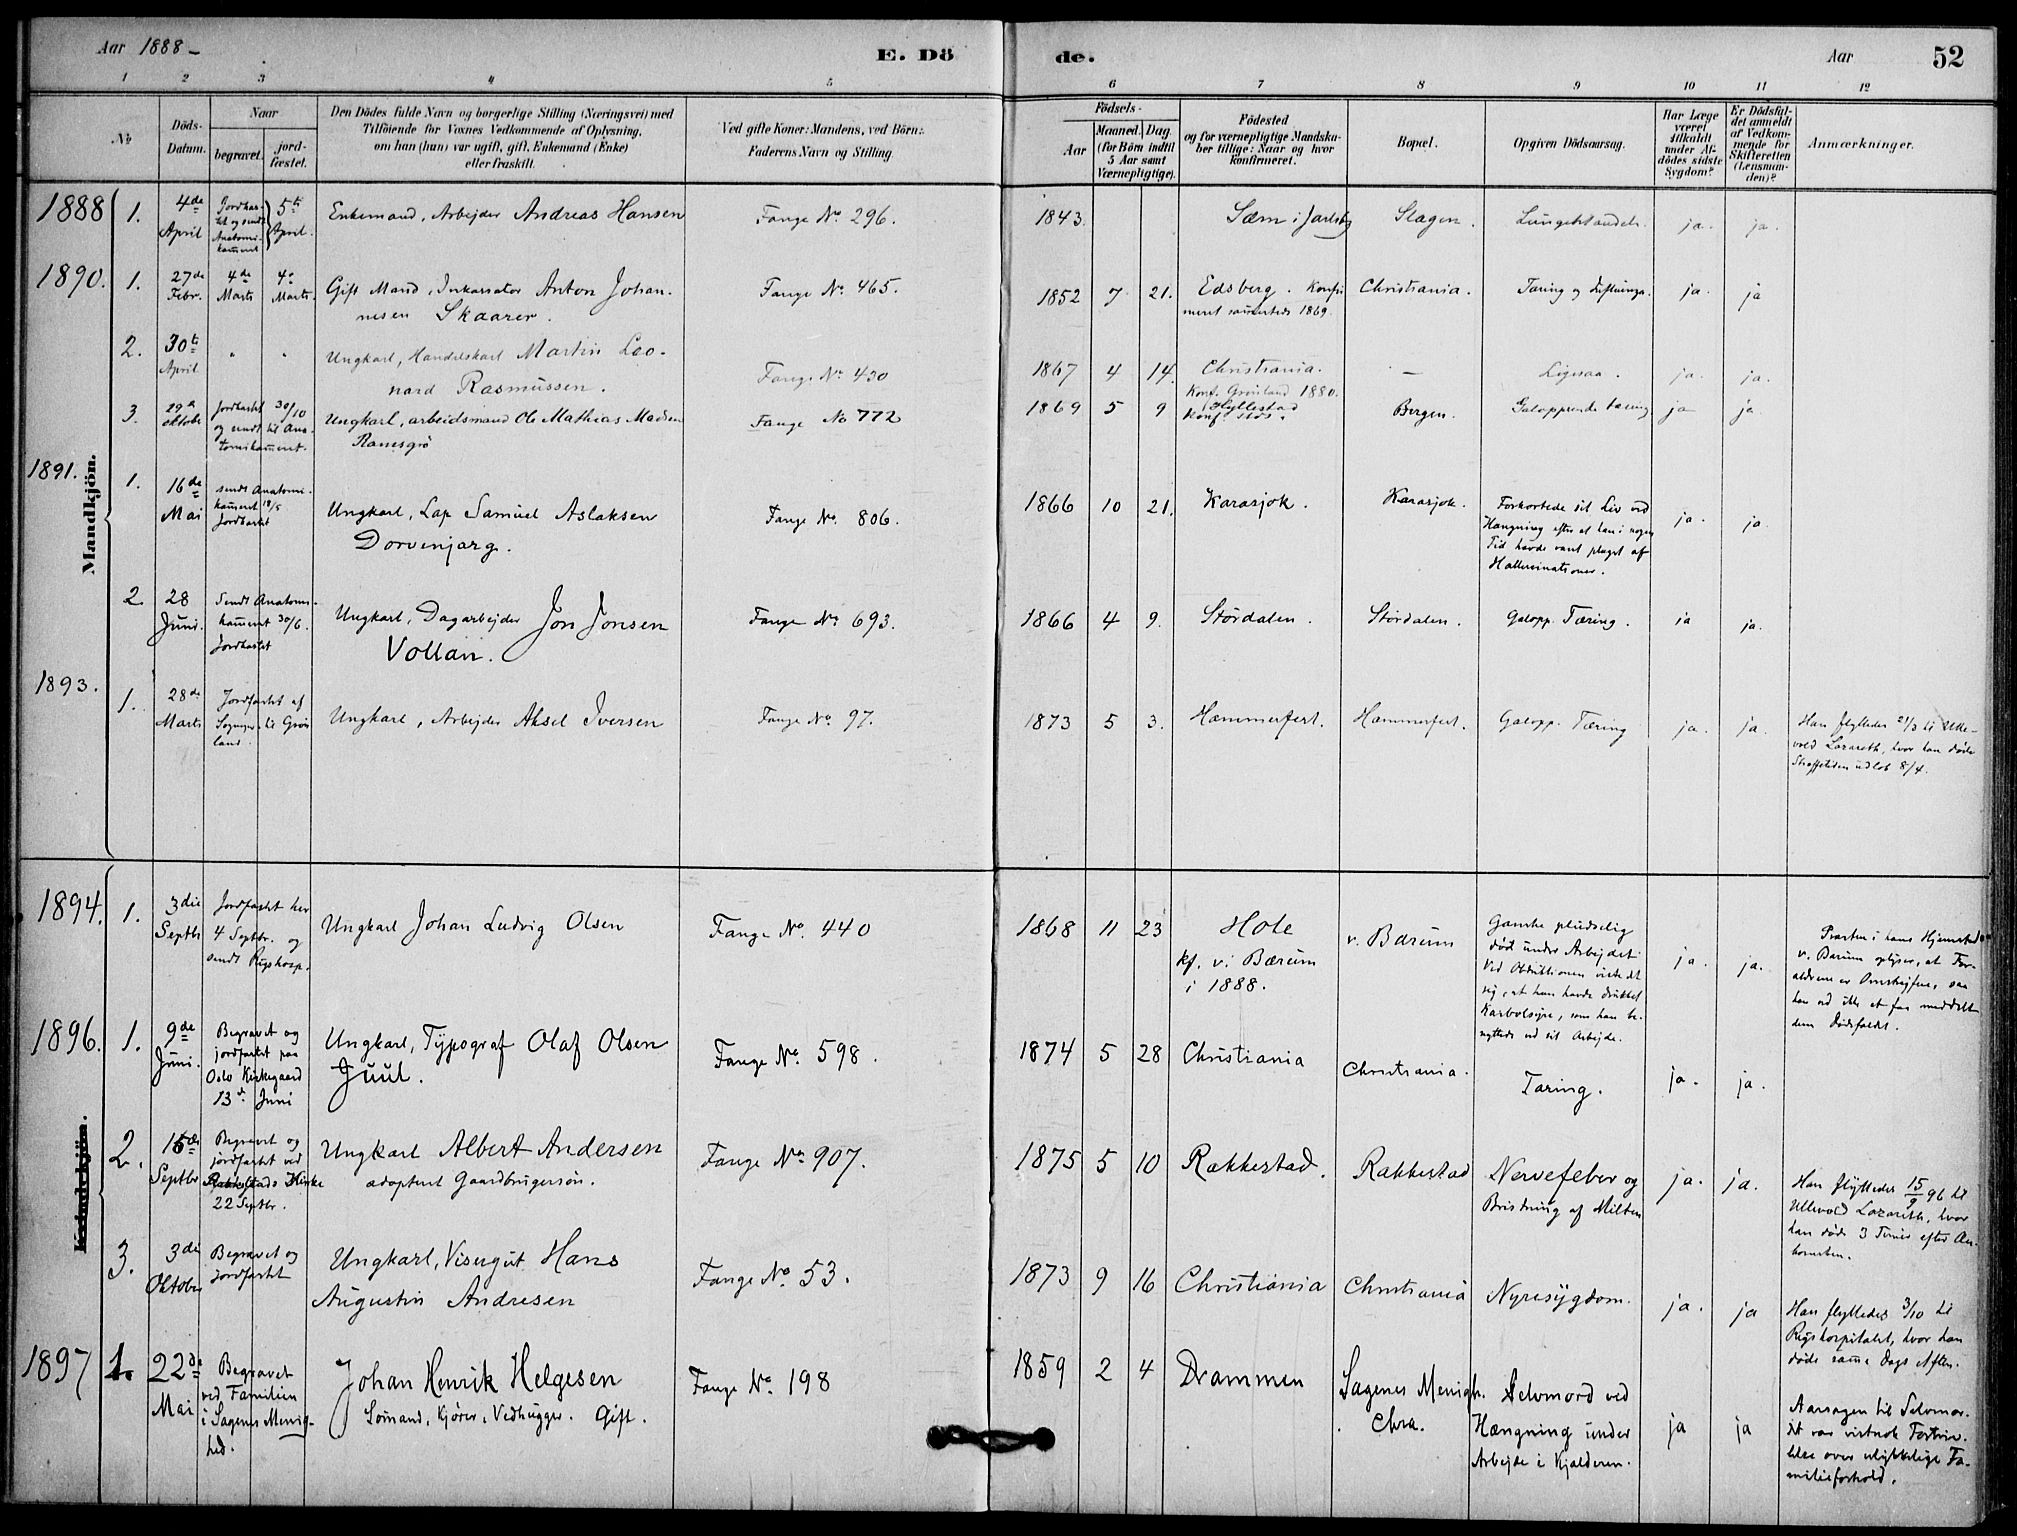 Aar 1888 –
E. Dö
de.
Aar
52
1 2 3 4 5 6 7 8 9 10 11 12
No
Döds-
Datum.
Naar
begravet.
jord-
fæstet.
Den Dödes fulde Navn og borgerlige Stilling (Næringsvei) med
Tilföiende for Voxnes Vedkommende af Oplysning,
om han (hun) var ugift, gift, Enkemand (Enke)
eller fraskilt.
Ved gifte Koner: Mandens, ved Börn:
Faderens Navn og Stilling.
Födsels-
Aar
Maaned. Dag.
(for Börn indtil
5 Aar samt
Værnepligtige).
Födested
og for værnepligtige Mandska-
ber tillige: Naar og hvor
konfirmeret.
Bopæl.
Opgiven Dödsaarsag.
Har Læge
været
tilkaldt
under Af-
dödes sidste
Sygdom?
Er Dödsfal-
det anmeldt
af Vedkom-
mende for
Skifteretten
(Lensman-
den)?
Anmærkninger.
Mandkjön.
1888
1.
4de
April
5te
April.
Enkemand, Arbejder Andreas Hansen
Fange No. 296.
1843.
Sæm i Jarlsby
Slagen.
ja.
ja.
1890.
1.
27de
Febr.
4de
Marts
4de
Marts.
Gift Mand, Inkassator Anton Johan-
nesen Skaarer.
Fange No. 465.
1852 7 21.
Edsberg. Konfir
meret sammesteds 1869.
Christiania.
ja.
ja
2.
30te
April
" "
Ungkarl, Handelskarl Martin Leo-
nard Rasmussen.
Fange No. 430
1867 4 14.
Christiania.
Konf. Grønland 1880.
—
Ligesaa.
ja.
ja.
3.
29de
Oktober
Jordfæstet 30/10
og sendt til Ana-
tomikammeret.
Ungkarl, arbeidsmand Ole Mathias Madsen
Ramsgrø
Fange No 772
1869 5 9
Hyllestad
Konf. stds.
Bergen.
Galopperende tæring
ja
ja
1891.
1.
16de
Mai
sendt Anatomi-
kammeret 18/5
Jordfæstet
Ungkarl, Lap Samuel Aslaksen
Dorvenjarg.
Fange No. 806.
1866 10 21.
Karasjok.
Karasjok.
Forkortede sit Liv ved
Hængning efter at han i nogen
Tid havde vært plaget af
Hallucinationer.
ja.
ja
2.
28
Juni.
Sendt Anatomi-
kammeret 30/6.
Jordfæstet
Ungkarl, Dagarbejder Jon Jonsen
Vollan.
Fange No. 693.
1866 4 9.
Stördalen.
Stördalen.
Galopp. Tæring.
ja
ja.
1893.
1.
28de
Marts
Jordfæstet af
Sognepr. til Grøn
land.
Ungkarl, Arbejder Aksel Iversen
Fange No. 97.
1873 5 3.
Hammerfest.
Hammerfest.
Galopp. Tæring
ja.
ja.
Han flyttedes 21/3 til Ulle-
vold Lazareth, hvor han døde
Straffetiden udløb 8/4.
Kvindekjön.
1894.
1.
3die
Septbr
Jordfæstet her
4 Septbr. og
sendt Rigshosp.
Ungkarl Johan Ludvig Olsen
Fange No. 440
1868 11 23
Hole
kf. v. Bærum
i 1888.
v. Bærum
Ganske pludselig
død under Arbejdet.
Ved Obduktionen viste det
sig, at han havde drukket
Karbolsyre, som han be-
nyttede ved sit Arbejde.
ja.
ja.
Præsten i hans Hjemsted
v. Bærum oplyser, at For-
ældrene er Omstrejfere, saa
han ved ikke at faa meddelt
dem Dødsfaldet.
1896.
1.
9de
Juni.
Begravet og
jordfæstet paa
Oslo Kirkegaard
13de Juni
Ungkarl, Typograf Olaf Olsen
Juul.
Fange No. 598.
1874 5 28
Christiania
Christiania.
Tæring.
ja.
ja.
2.
15de
Septbr
Begravet og
jordfæstet ved
Rakkestads Kirke
22 Septbr.
Ungkarl Albert Andersen
adoptert Gaardbrugersøn.
Fange No. 907.
1875 5 10
Rakkestad.
Rakkestad
Nervefeber og
Bristning af Milten
ja.
ja.
Han flyttedes 15/9 96 til
Ullevold Lazareth, hvor
han døde 3 Timer efter An-
komsten.
3.
3die
Oktober
Begravet og
jordfæstet
Ungkarl, Visergut Hans
Augustin Andresen
Fange No. 53.
1873 9 16
Christiania
Christiania
Nyresygdom.
ja.
ja
Han flyttedes 3/10 til
Rigshospitalet, hvor han
døde samme Dags Aften.
1897
1.
22de
Mai
Begravet
ved Familien
i Sagenes Menig-
hed.
Johan Henrik Helgesen
Sømand, Kjører, Vedhugger. Gift.
Fange No. 198
1859 2 4
Drammen
Sagenes Menigh.
Chra.
Selvmord ved
Hængning under
Arbejde i Kjælderen.
ja
ja
Aarsagen til Selvmor-
det var vistnok Fortviv-
lelse over ulykkelige Fa-
milieforhold.